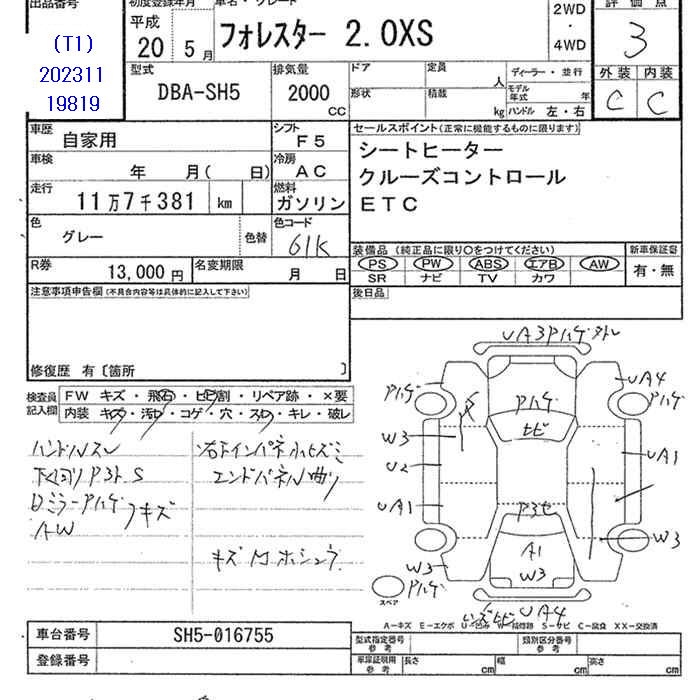 出品番号
初度登録年月
車名・グレード
評価点
(T1)
202311
19819
平成
20 5月
フォレスター 2.0XS
2WD
・
4WD
3
型式
DBA-SH5
排気量
2000
CC
ドア
定員
人
ディーラー・並行
形状
積載
kg
モデル年式
年
ハンドル 左・右
外装 内装
C C
車歴
自家用
シフト
F5
セールスポイント(正常に機能するものに限ります)
シートヒーター
クルーズコントロール
ETC
車検
年 月( 日)
冷房
AC
走行
11万7千381 km
燃料
ガソリン
色
グレー
色替
色コード
61K
装備品(純正品に限り○をつけてください)
新車保証書
PS PW ABS エアB AW
SR ナビ TV カワ
有・無
R券
13,000円
名変期限
月 日
後日品
注意事項申告欄(不具合内容等は具体的に記入して下さい)
修復歴 有〔箇所 〕
検査員
記入欄
FW キズ・飛石・ヒビ割・リペア跡・×要
内装 キズ・汚レ・コゲ・穴・スレ・キレ・破レ
ハンドルスレ
下回りPサビS
ミラーPハゲ
キズ
AW
右下インパネ小ヒズミ
エンドパネル曲り
キズ
UA3Pハゲ
Pハゲ
UA4
Pハゲ
Pハゲ
ヒビ
W3
U2
UA1
UA1
A1
W3
W3
W3
Pハゲ
スペア
UA4
A-キズ E-エクボ U-凹み W-補修跡 S-サビ C-腐食 XX-交換済
車台番号
SH5-016755
登録番号
型式指定番号
参考
類別区分番号
参考
車庫証明用
参考
長さ cm
幅 cm
高さ cm